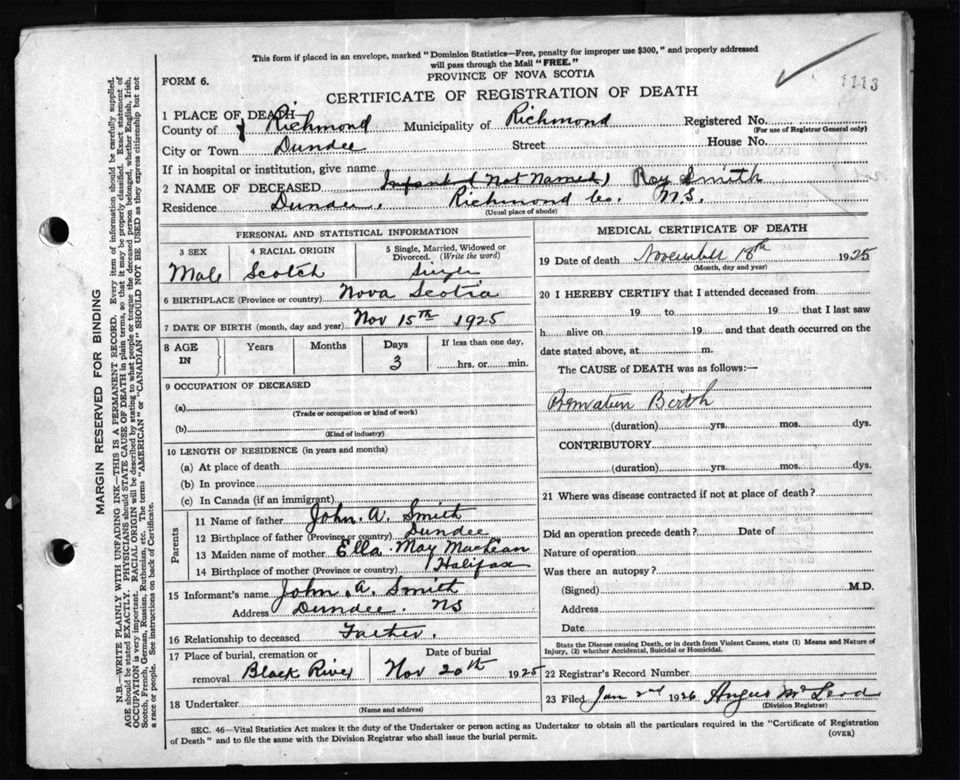 This form if placed in an envelope, marked "Dominion Statistics—Free, penalty for improper use $300," and properly addressed
will pass through the Mail "FREE."
FORM 6.
PROVINCE OF NOVA SCOTIA
1113
CERTIFICATE OF REGISTRATION OF DEATH
1 PLACE OF DEATH
County of Richmond Municipality of Richmond Registered No.
(For use of Registrar General only)
City or Town Dundee Street House No.
If in hospital or institution, give name
2 NAME OF DECEASED Infant (Not Named) Roy Smith
Residence Dundee. Richmond Co. N.S.
(Usual place of abode)
PERSONAL AND STATISTICAL INFORMATION
3 SEX 4 RACIAL ORIGIN 5 Single, Married, Widowed or
Divorced. (Write the word)
Male Scotch Single
6 BIRTHPLACE (Province or country) Nova Scotia
7 DATE OF BIRTH (month, day and year) Nov 15th 1925
8 AGE IN Years Months Days If less than one day,
3 hrs. or min.
9 OCCUPATION OF DECEASED
(a)
(Trade or occupation or kind of work)
(b)
(Kind of industry)
10 LENGTH OF RESIDENCE (in years and months)
(a) At place of death
(b) In province
(c) In Canada (if an immigrant)
Parents
11 Name of father John. A. Smith
12 Birthplace of father (Province or country) Dundee
13 Maiden name of mother Ella May MacLean
14 Birthplace of mother (Province or country) Halifax
15 Informant's name John. A. Smith
Address Dundee. NS
16 Relationship to deceased Father.
17 Place of burial, cremation or Date of burial
removal Black River Nov 20th 1925
18 Undertaker
(Name and address)
MEDICAL CERTIFICATE OF DEATH
19 Date of death November 18th 1925
(Month, day and year)
20 I HEREBY CERTIFY that I attended deceased from
19 to 19 that I last saw
h alive on 19 and that death occurred on the
date stated above, at m.
The CAUSE of DEATH was as follows:—
Premature Birth
(duration) yrs. mos. dys.
CONTRIBUTORY
(duration) yrs. mos. dys.
21 Where was disease contracted if not at place of death?
Did an operation precede death? Date of
Nature of operation
Was there an autopsy?
(Signed) M.D.
Address
Date
State the Disease causing Death, or in death from Violent Causes, state (1) Means and Nature of
Injury, (2) whether Accidental, Suicidal or Homicidal.
22 Registrar's Record Number
23 Filed Jan 2nd 1926 Angus McLeod
(Division Registrar)
SEC. 46—Vital Statistics Act makes it the duty of the Undertaker or person acting as Undertaker to obtain all the particulars required in the "Certificate of Registration
of Death" and to file the same with the Division Registrar who shall issue the burial permit.
(OVER)
MARGIN RESERVED FOR BINDING
N.B.—WRITE PLAINLY WITH UNFADING INK—THIS IS A PERMANENT RECORD. Every item of information should be carefully supplied.
AGE should be stated EXACTLY. PHYSICIANS should STATE CAUSE OF DEATH in plain terms, so that it may be properly classified. Exact statement of
OCCUPATION is very important. RACIAL ORIGIN will be described by stating to what people or tongue the deceased person belonged, whether English, Irish,
Scotch, French, German, Russian, Ruthenian, etc. The terms "AMERICAN" or "CANADIAN" SHOULD NOT BE USED as they express citizenship but not
a race or people. See instructions on back of Certificate.